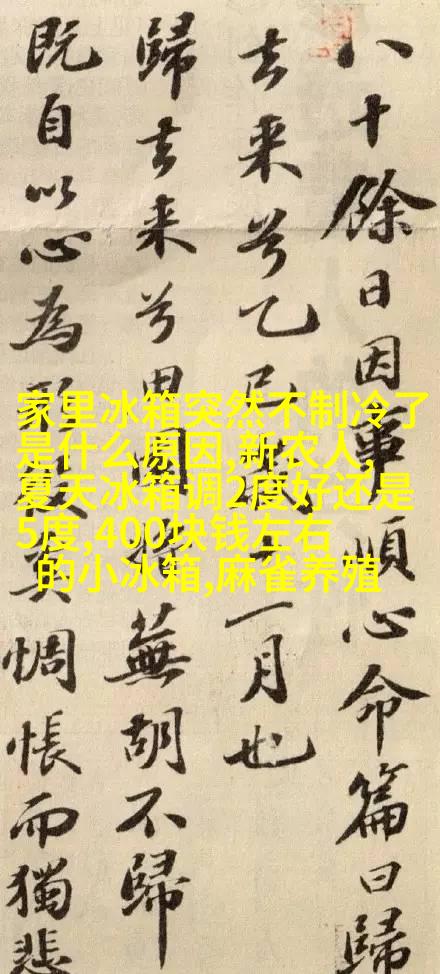 八十餘日因事順心命篇曰歸
去来兮乙巳一月也
歸去来兮田園蕪胡不歸
既自以心為奚惆悵而獨悲
家里冰箱突然不制冷了
是什么原因,新农人,
夏天冰箱调2度好还是
5度,400块钱左右
的小冰箱,麻雀养殖